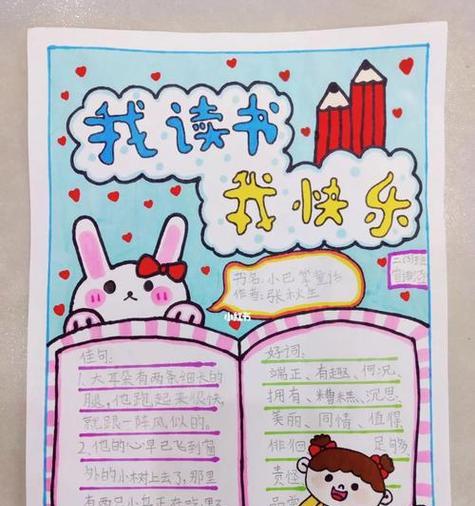 我读书
我快乐
书名:小巴掌童话
作者:张秋生
二(3)班
小红书
佳句:
1.大耳朵有两条细长的
腿,他跑起来很快
就跟一阵风似的。
2.他的心早已飞到窗
外的小树上去了,那里
好词:
端正、有趣、何况、
拥有、糟糕、沉思
美丽、同情、值得
徘徊
足够
责怪